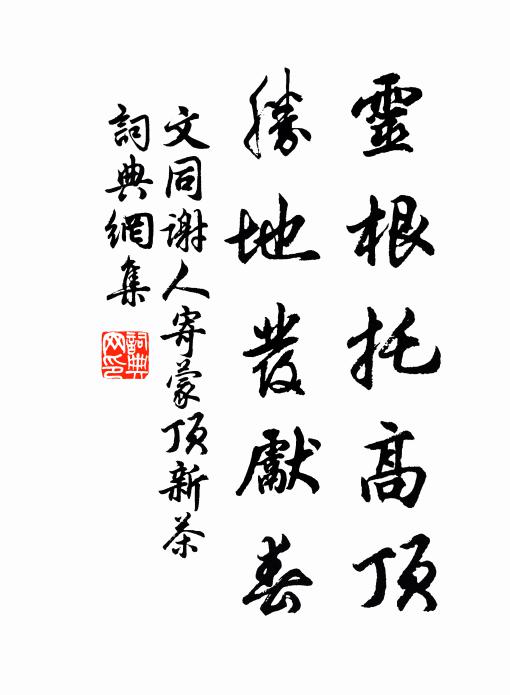 靈根托高頂
勝地發獻春
文同謝人寄蒙頂新茶
詞典網集
詞典網印